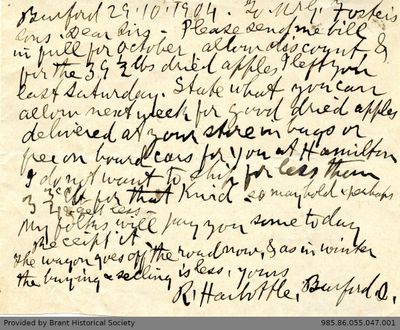 Burford 29.10.1904. To Mr G. Foster's
sons. Dear Sirs - Please send me bill
in full for October, allow discount, &
for the 39½ lbs dried apples I left you
last Saturday. State what you can
allow next week for good dried apples
delivered at your store in bags or
free on board cars for you at Hamilton
I do not want to ship for less than
3 ½ c lb for that kind - so may hold & perhaps
get less -
My folks will pay you some today
Receipt it
The wagon goes off the road now, & as in winter
the buying & selling is less. yours
R. Harbottle, Burford O.
985.86.055.047.001
Provided by Brant Historical Society